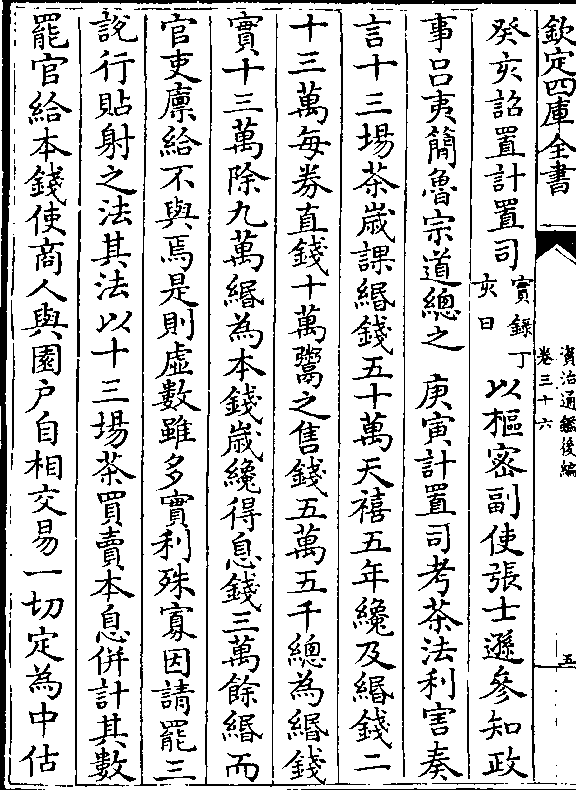 欽定四庫全書
資治通鑑後編
卷三十六
五
癸亥詔置計置司實錄丁亥日以樞密副使張士遜參知政
事呂夷簡魯宗道總之 庚寅計置司考茶法利害奏
言十三場茶歲課緡錢五十萬天禧五年纔及緡錢二
十三萬每券直錢十萬鬻之售錢五萬五千總為緡錢
實十三萬除九萬緡為本錢歲纔得息錢三萬餘緡而
官吏廪給不與焉是則虛數雖多實利殊寡因請罷三
說行貼射之法其法以十三場茶買賣本息併計其數
罷官給本錢使商人與園户自相交易一切定為中估